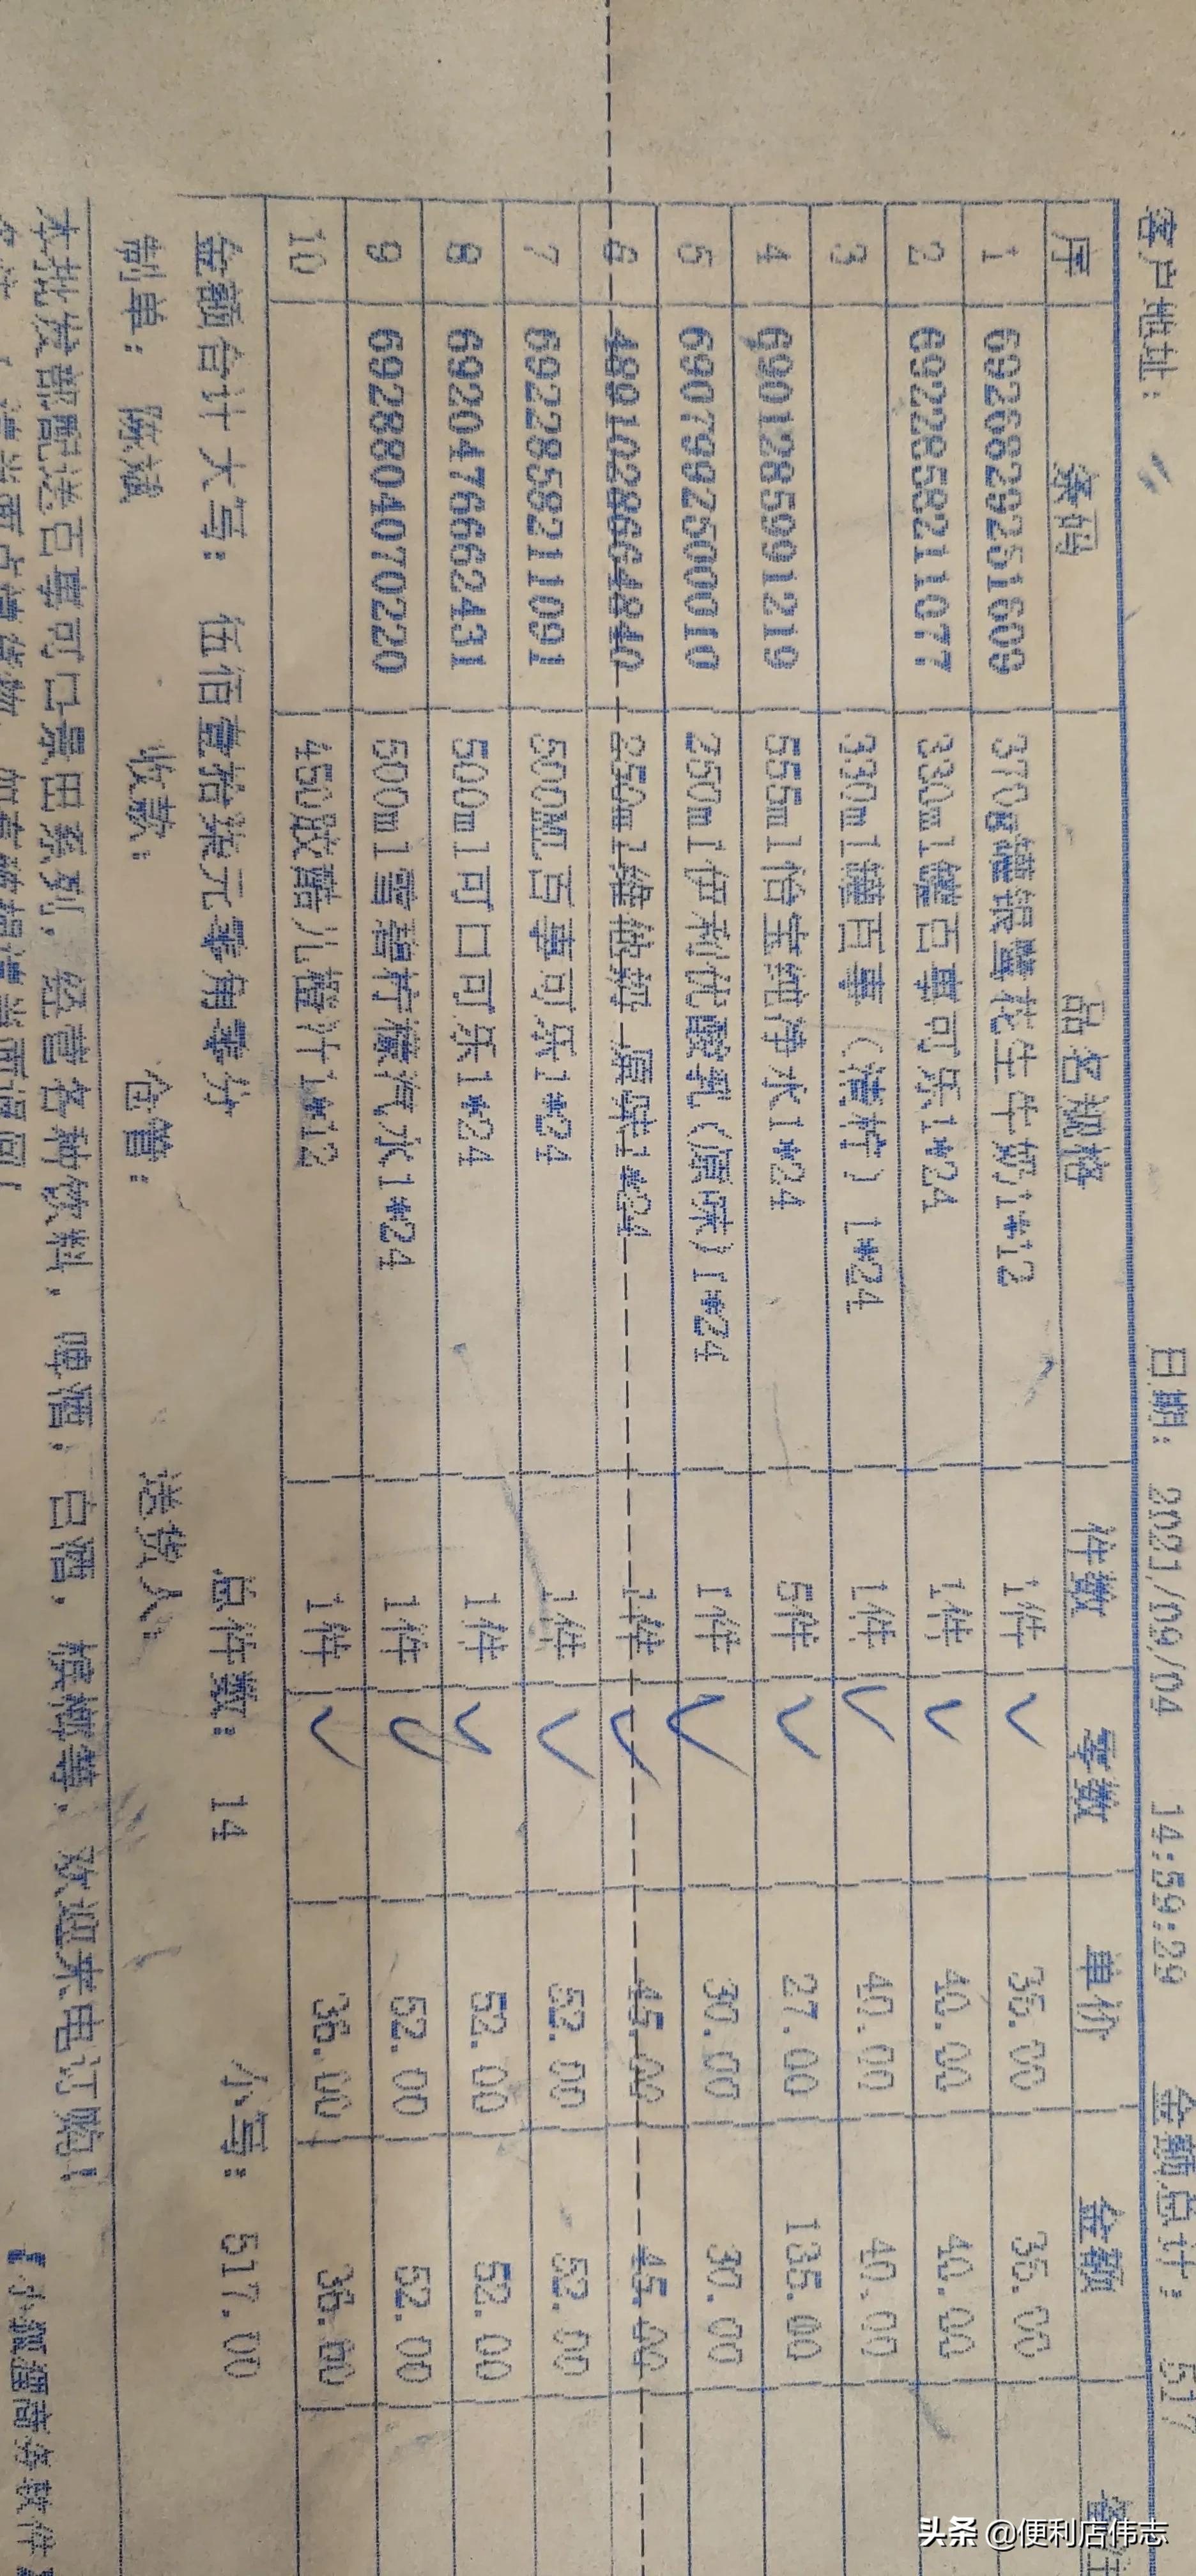 客户地址： 日期：2021/09/04 14:59:29 金额总计：517
序 条码 品名规格 件数 零数 单价 金额 备注
1 6926829251609 370g罐银鹭花生牛奶1*12 1件 35.00 35.00
2 6922858211077 330ml罐百事可乐1*24 1件 40.00 40.00
3 330ml罐百事（清柠）1*24 1件 40.00 40.00
4 6901285991219 555ml怡宝纯净水1*24 5件 27.00 135.00
5 6907992500010 250ml伊利优酸乳(原味)1*24 1件 30.00 30.00
6 4891028664840 250ml维他奶 原味1*24 1件 45.00 45.00
7 6922858211091 500ML百事可乐1*24 1件 52.00 52.00
8 6920476662431 500ml可口可乐1*24 1件 52.00 52.00
9 6928804070220 500ml雪碧柠檬汽水1*24 1件 52.00 52.00
10 450胶酷儿橙汁1*12 1件 36.00 36.00
金额合计大写：伍佰壹拾柒元零角零分 总件数：14 小写：517.00
制单：陈斌 收款： 仓管： 送货人：
本批发部配送百事可口景田系列，经营各种饮料，啤酒，白酒，槟榔等，欢迎来电订购！
头条 @便利店伟志